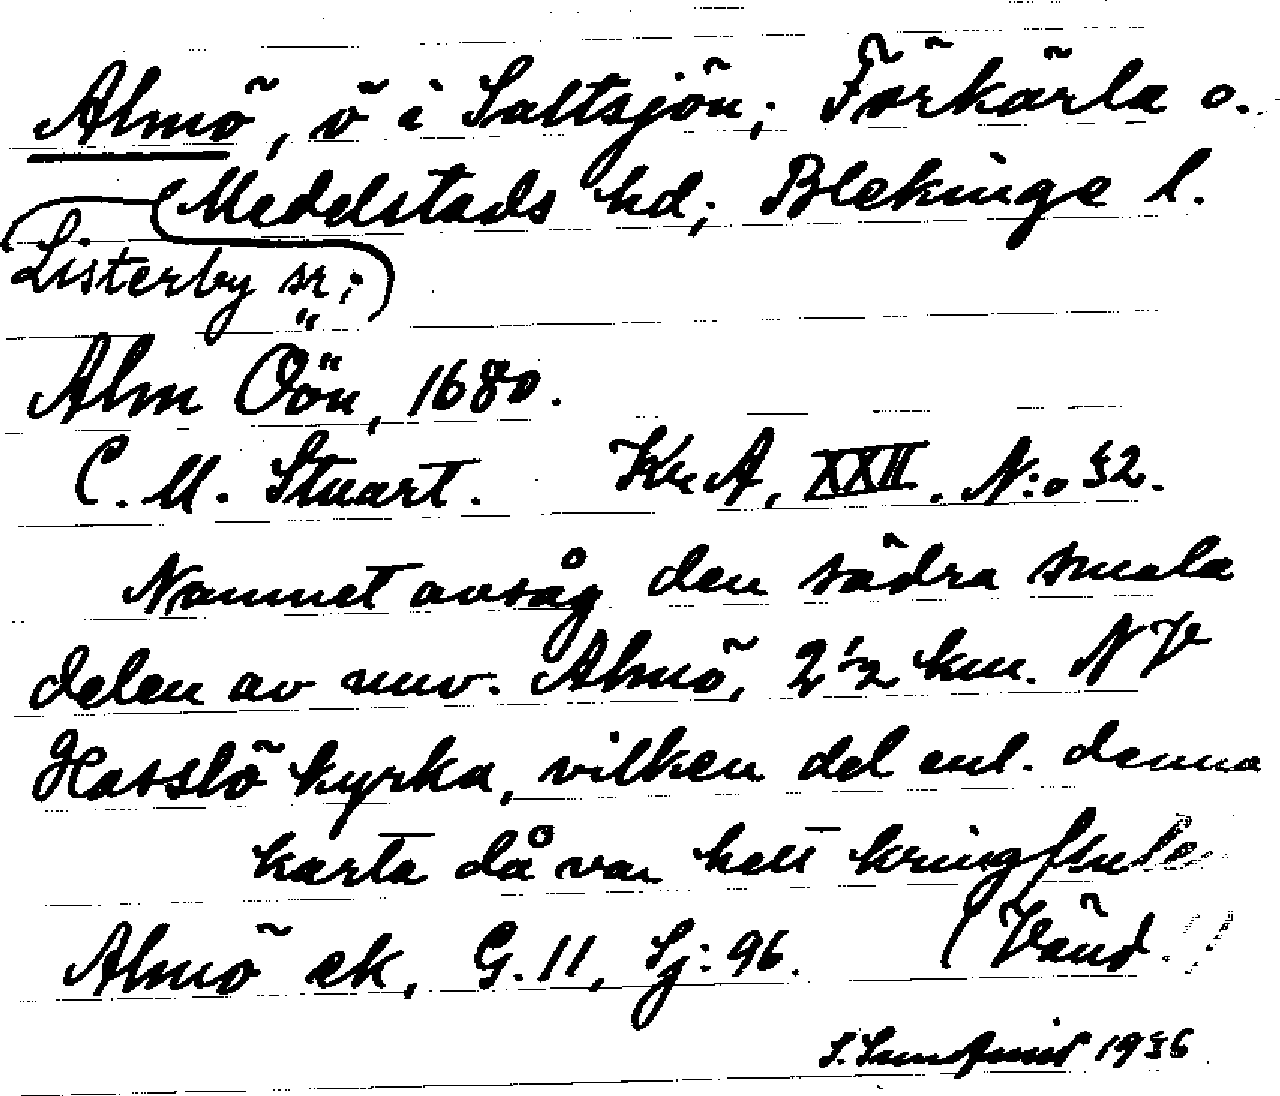 Almö, ö i Saltsjön; Förkärla o.
Medelstads hd; Blekinge l.
Listerby sn;
Alm Öön, 1680.
C. M. Stuart. KrA, XXII. N:o 32.
Namnet avsåg den södra smala
delen av nuv. Almö, 2 1/2 km. NV
Hasslö kyrka, vilken del enl. denna
karta då var helt kringfluten
Almö ek, G. 11, Sj: 96. (Vänd.)
1936